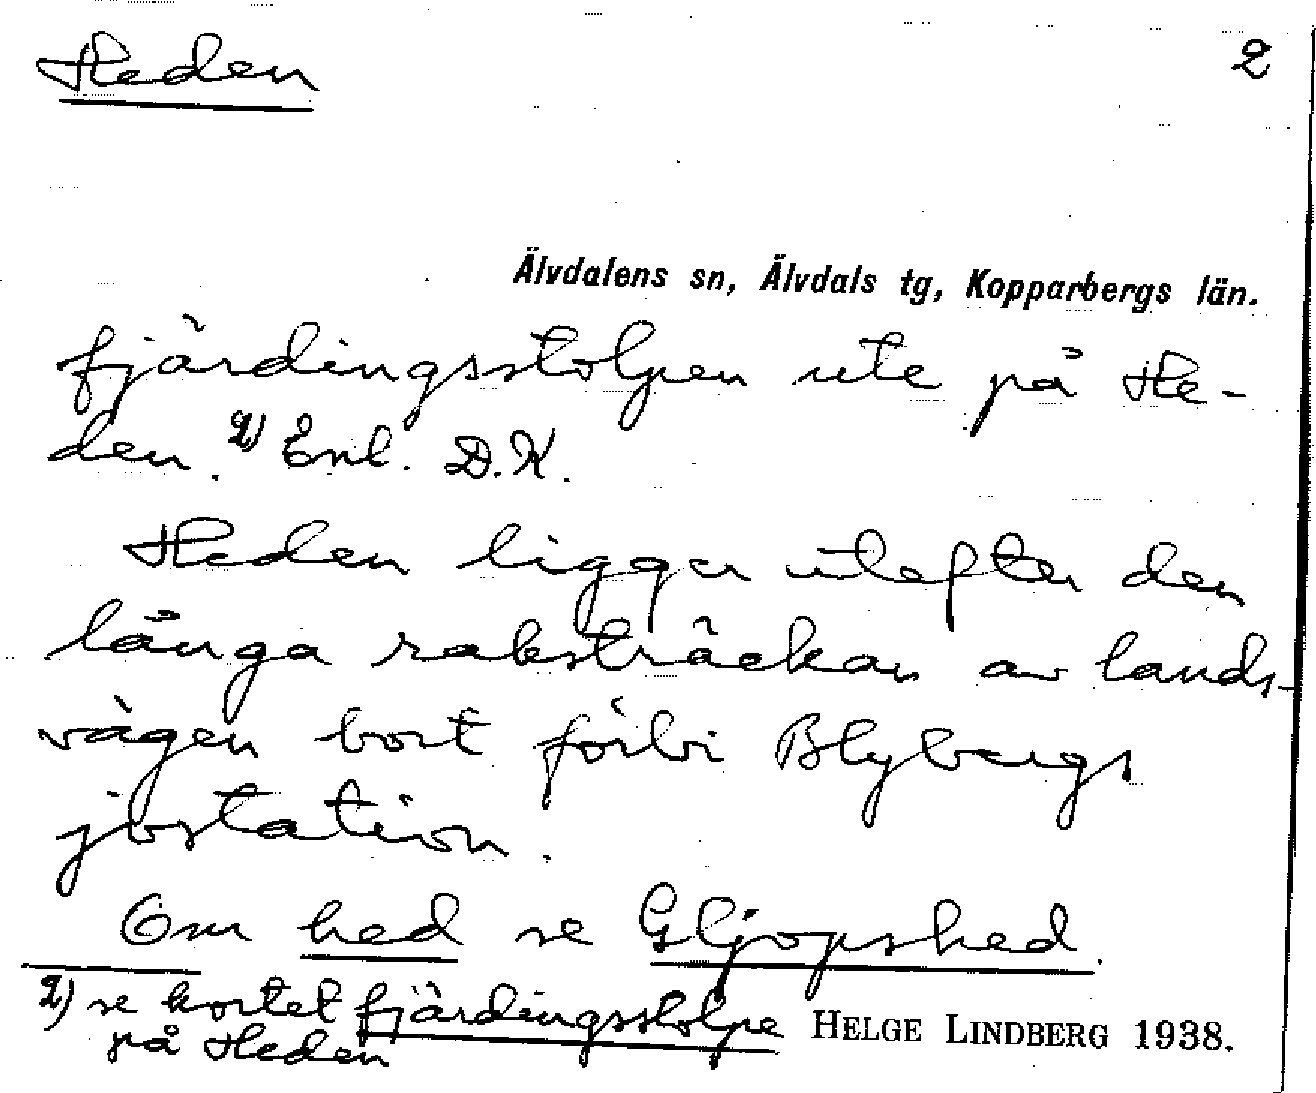 Heden 2
Älvdalens sn, Älvdals tg, Kopparbergs län.
fjärdingsstolpen ute på He-
den. 2) Enl. D.K.
Heden ligger utefter den
långa raksträckan av lands-
vägen bort förbi Blybergs
jvstation.
Om hed se Gljopshed.
2) se kortet fjärdingsstolpe
på Heden
HELGE LINDBERG 1938.